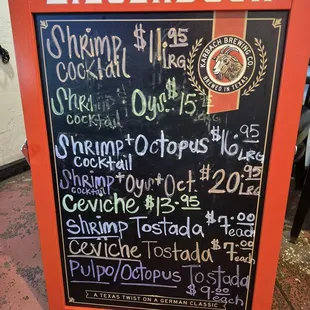 Shrimp $11.95
cocktail LRG
KARBACH BREWING CO.
BREWED IN TEXAS
Shr. Oys. $15
cocktail LRG
Shrimp+Octopus $16.95
cocktail LRG
Shrimp+Oys+Oct. $20.95
cocktail LRG
Ceviche $13.95
Shrimp Tostada $7.00 each
Ceviche Tostada $7.00 each
Pulpo/Octopus Tostada
$9.00 each
A TEXAS TWIST ON A GERMAN CLASSIC